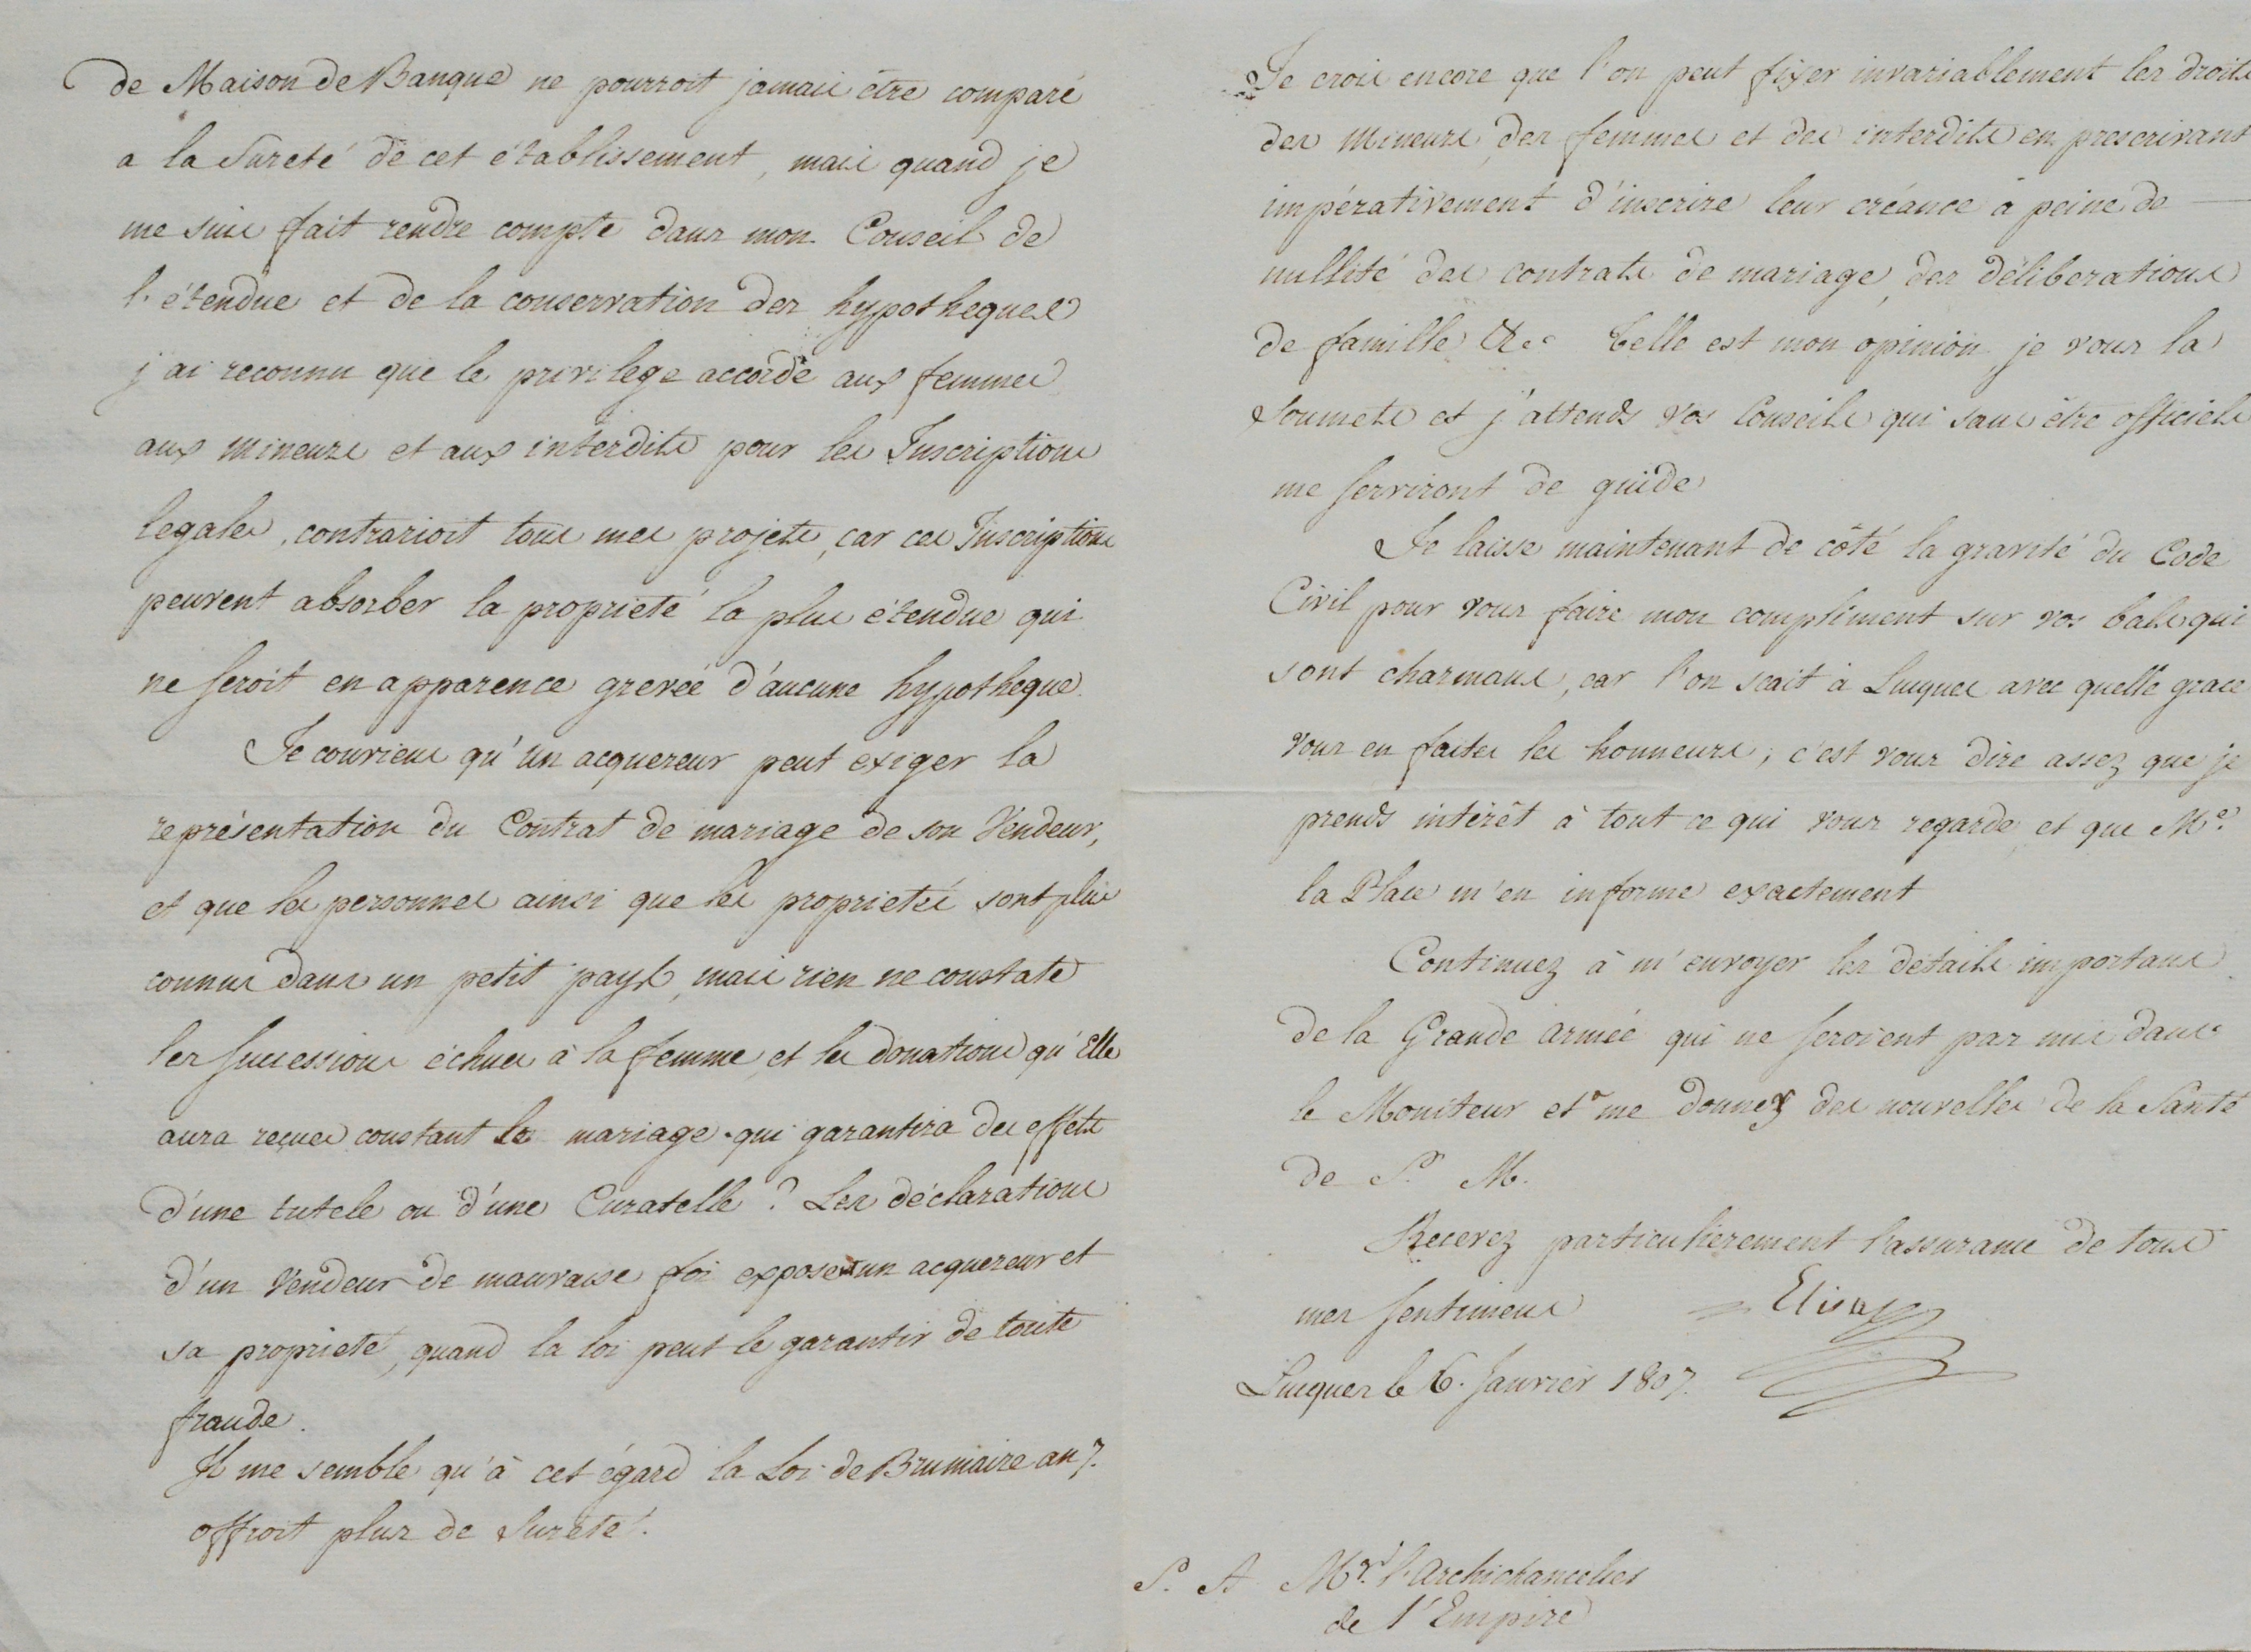 de Maison de Banque ne pourroit jamais être comparé
a la Sureté de cet établissement, mais quand je
me suis fait rendre compte dans mon Conseil de
l'étendue et de la conservation des hypotheques
j'ai reconnu que le privilege accordé aux femmes
aux mineurs et aux interdits pour les Inscriptions
legales, contrarioit tous mes projets, car ces Inscriptions
peuvent absorber la proprieté la plus étendue qui
ne seroit en apparence grevée d'aucune hypotheque.
Je conviens qu'un acquereur peut exiger la
représentation du Contrat de mariage de son Vendeur,
et que les personnes ainsi que les proprietés sont plus
connus dans un petit pays, mais rien ne constate
les successions échues à la femme, et les donations qu'Elle
aura reçues constant le mariage. qui garantira des effets
d'une tutele ou d'une Curatelle? Les déclarations
d'un Vendeur de mauvaise foi expose un acquereur et
sa proprieté, quand la loi peut le garantir de toute
fraude.
Il me semble qu'à cet égard la Loi de Brumaire an 7.
offroit plus de Sureté.
Je crois encore que l'on peut fixer invariablement les droits
des mineurs, des femmes et des interdits en prescrivant
impérativement d'inscrire leur créance à peine de
nullité des contrats de mariage, des déliberations
de famille &c. Telle est mon opinion, je vous la
soumets et j'attends vos Conseils qui sans être officiels
me serviront de guide
Je laisse maintenant de côté la gravité du Code
Civil pour vous faire mon compliment sur vos bals qui
sont charmans, car l'on scait à Lucques avec quelle grace
vous en faites les honneurs; c'est vous dire assez que je
prends intérêt à tout ce qui vous regarde, et que Me.
la Place m'en informe exactement
Continuez à m'envoyer les détails importans
de la Grande armée qui ne seroient pas mis dans
le Moniteur et me donnez des nouvelles de la Santé
de S. M.
Recevez particulièrement l'assurance de tous
mes sentimens Elisa
Lucques le 6. Janvier 1807.
S. A Mr. l'Archichancelier
de l'Empire